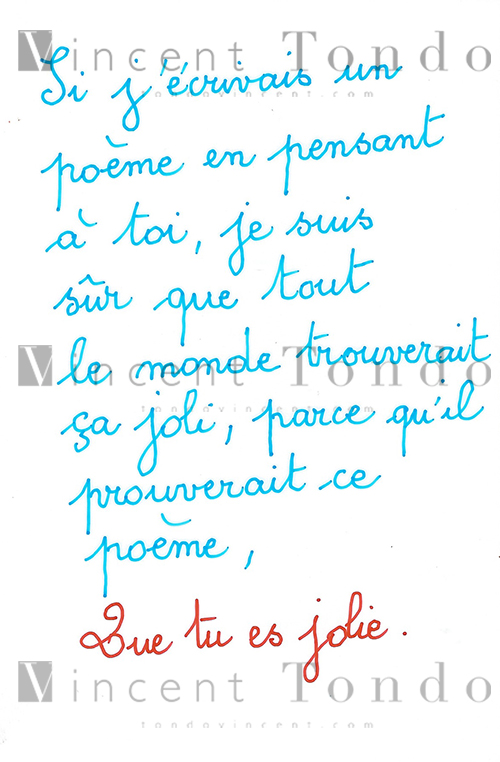 Vincent Tondo
Si j'écrivais un
tondovincent.com
poème en pensant
à toi, je suis
sûr que tout
Vincent Tondo
le monde trouverait
tondovincent.com
ça joli, parce qu'il
prouverait ce
poème,
Que tu es jolie.
Vincent Tondo
tondovincent.com